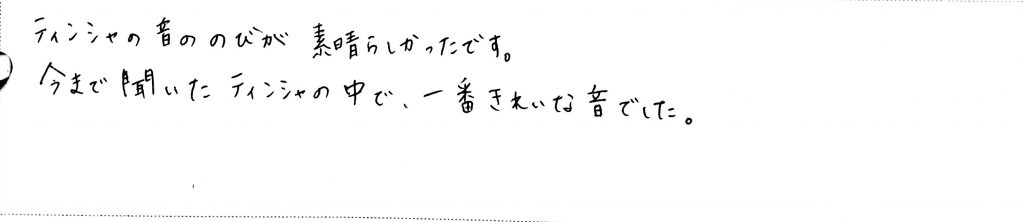 ティンシャの音ののびが 素晴らしかったです。
今まで聞いた ティンシャの中で、一番きれいな音でした。